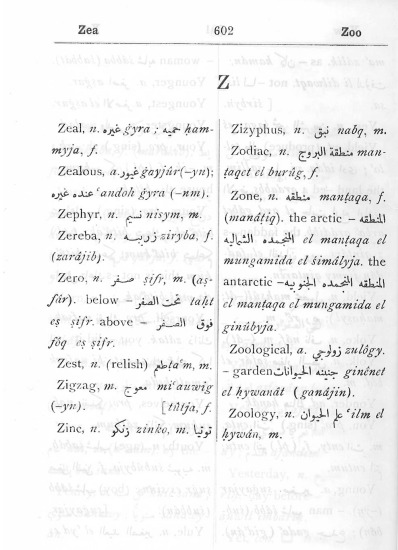 Zea 602 Zoo
Z
Zeal, n. غيره ġyra; حميه ḥam-
myja, f.
Zealous, a. غيور ġayjūr (-yn);
عنده غيره ʿandoh ġyra (-nm).
Zephyr, n. نسيم nisym, m.
Zereba, n. زريبه ziryba, f.
(zarájib).
Zero, n. صفر ṣifr, m. (aṣ-
fár). below – تحت الصفر taḥt
eṣ ṣifr. above – فوق الصفر
fóq eṣ ṣifr.
Zest, n. (relish) طعم ṭaʿm, m.
Zigzag, m. معوج miʿauwig
(-yn). [tûtja, f.
Zinc, n. زنكو zinko, m. توتيا
Zizyphus, n. نبق nabq, m.
Zodiac, n. منطقة البروج man-
ṭaqet el burûg, f.
Zone, n. منطقه manṭaqa, f.
(manáṭiq). the arctic – المنطقه
المنجمده الشماليه el manṭaqa el
mungamida el śimályja. the
antarctic – المنطقه المنجمده الجنوبيه
el manṭaqa el mungamida el
ginûbyja.
Zoological, a. زولجي zulógy.
– garden جنينه الحيوانات ginénet
el ḥywanát (ganájin).
Zoology, n. علم الحيوان ʿilm el
ḥywán, m.